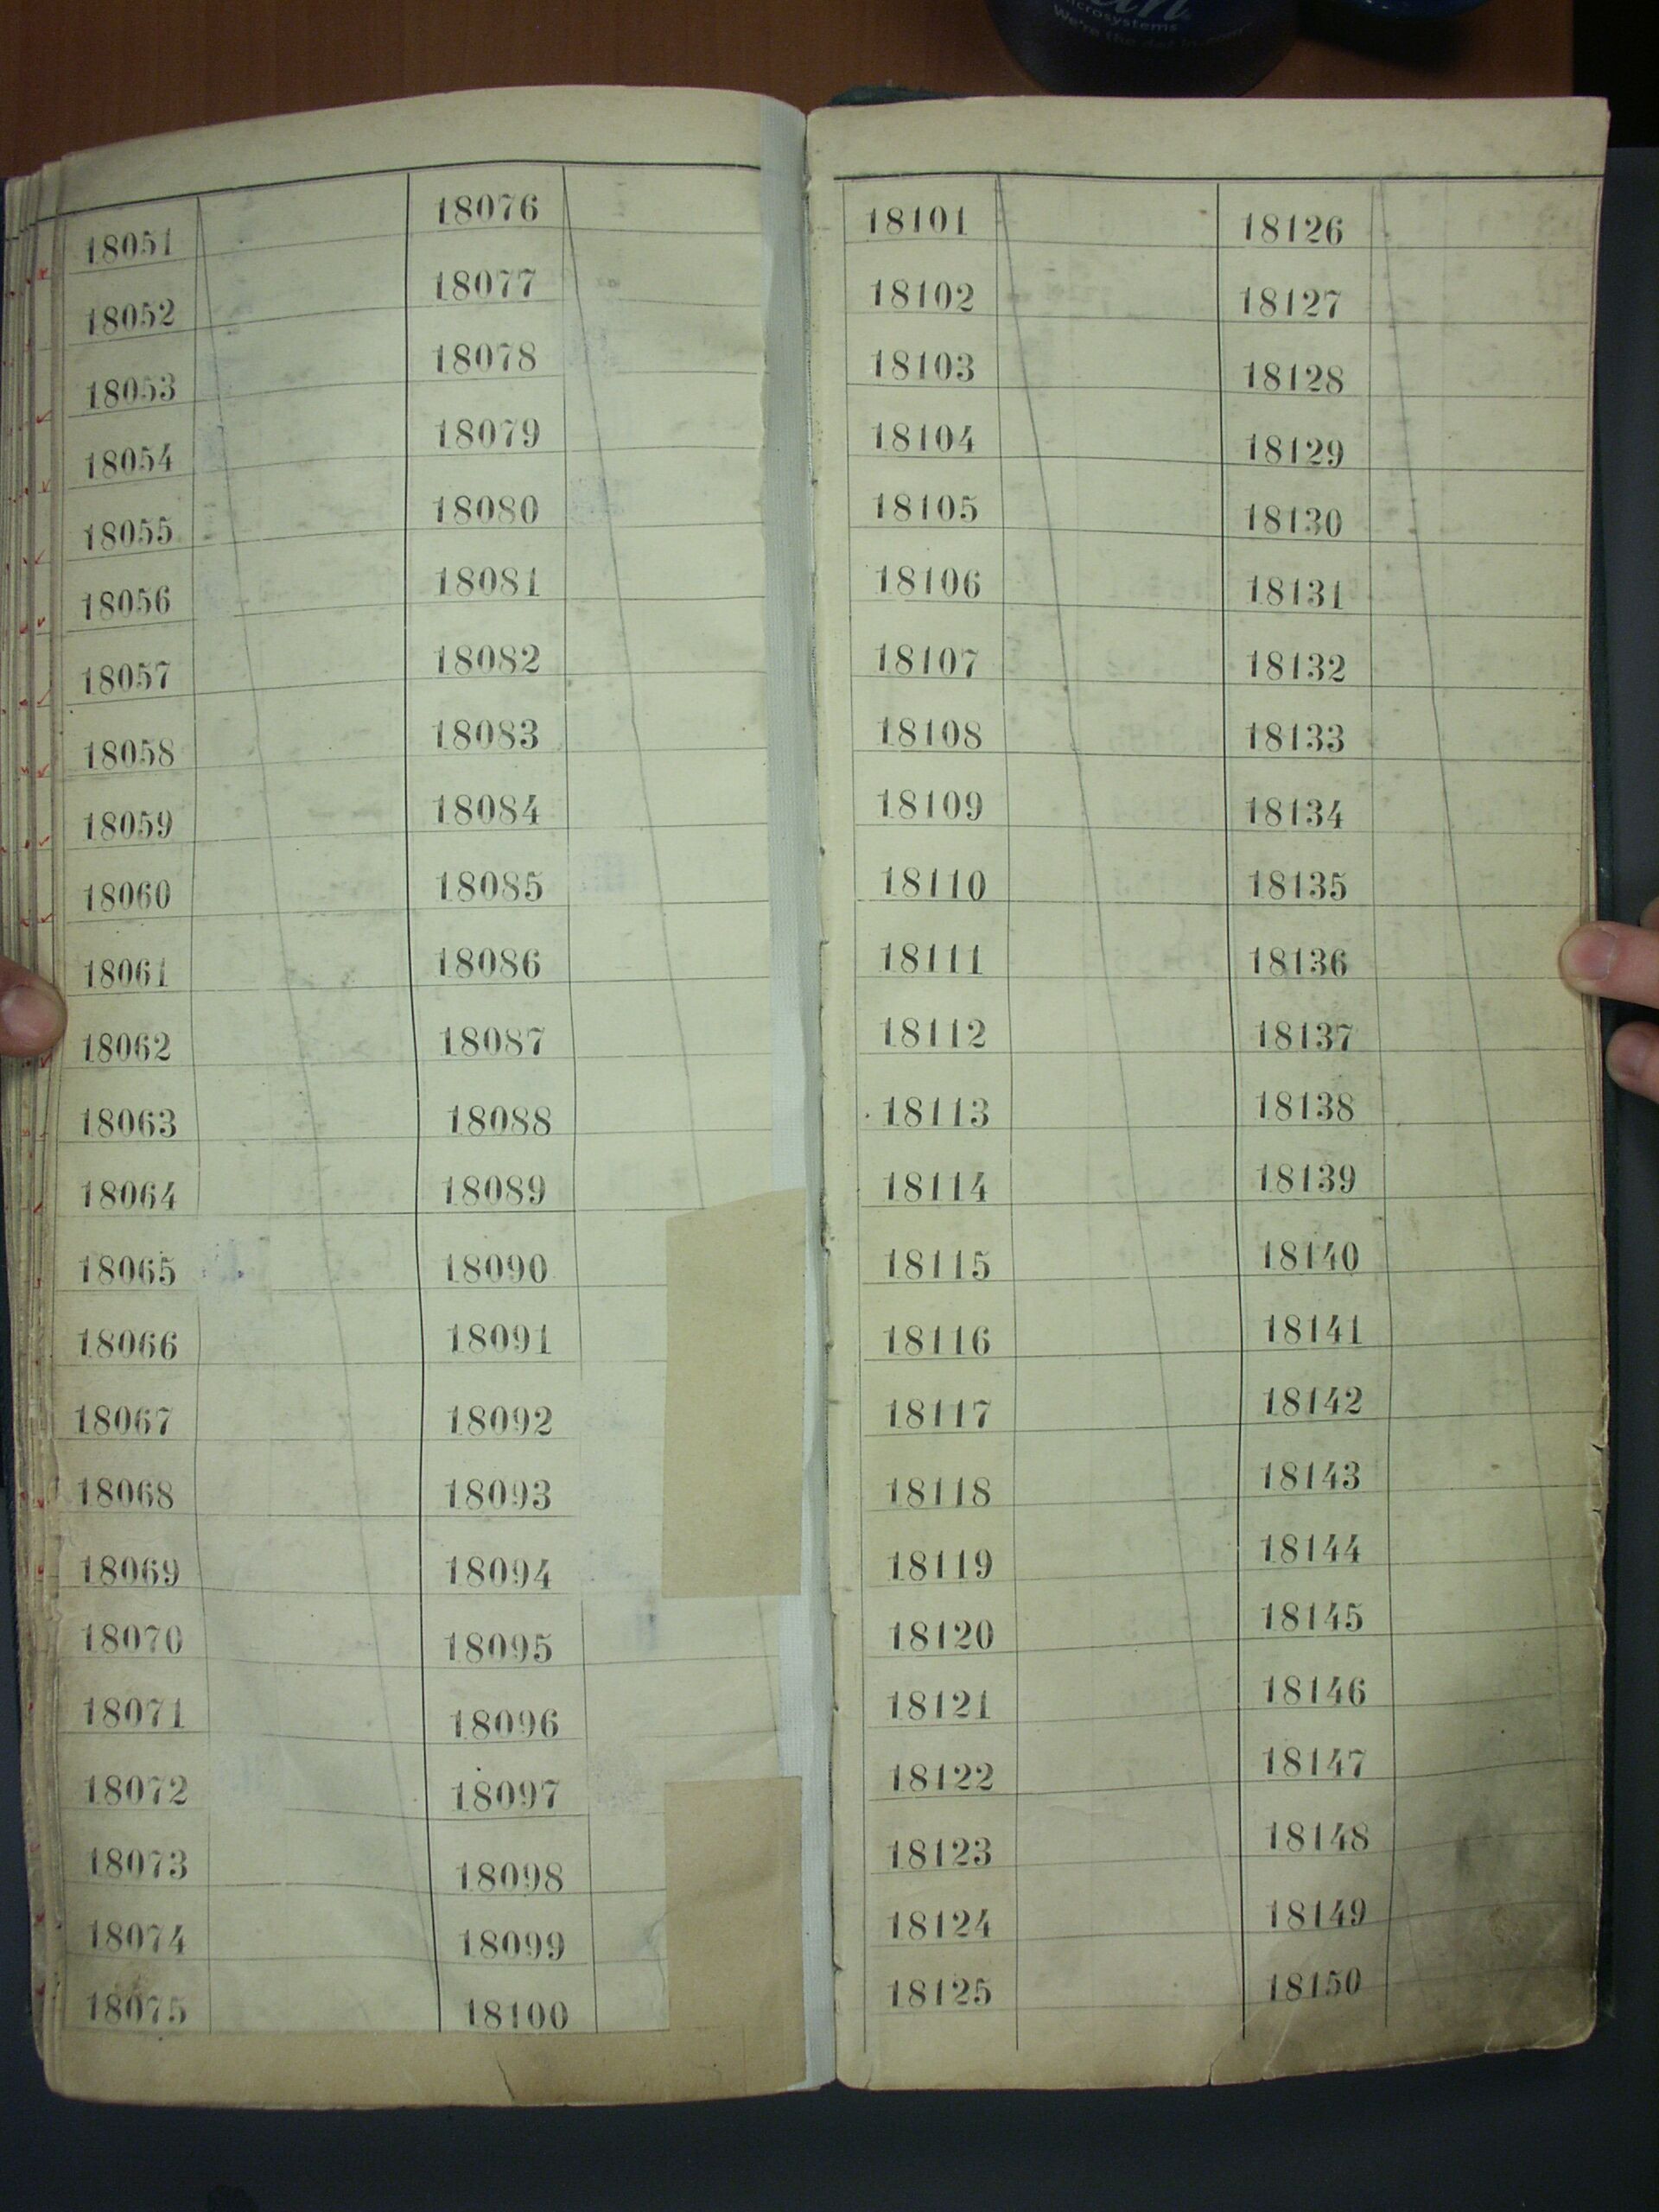 microsystems
We're the dot in
18051
18052
18053
18054
18055
18056
18057
18058
18059
18060
18061
18062
18063
18064
18065
18066
18067
18068
18069
18070
18071
18072
18073
18074
18075
18076
18077
18078
18079
18080
18081
18082
18083
18084
18085
18086
18087
18088
18089
18090
18091
18092
18093
18094
18095
18096
18097
18098
18099
18100
18101
18102
18103
18104
18105
18106
18107
18108
18109
18110
18111
18112
18113
18114
18115
18116
18117
18118
18119
18120
18121
18122
18123
18124
18125
18126
18127
18128
18129
18130
18131
18132
18133
18134
18135
18136
18137
18138
18139
18140
18141
18142
18143
18144
18145
18146
18147
18148
18149
18150